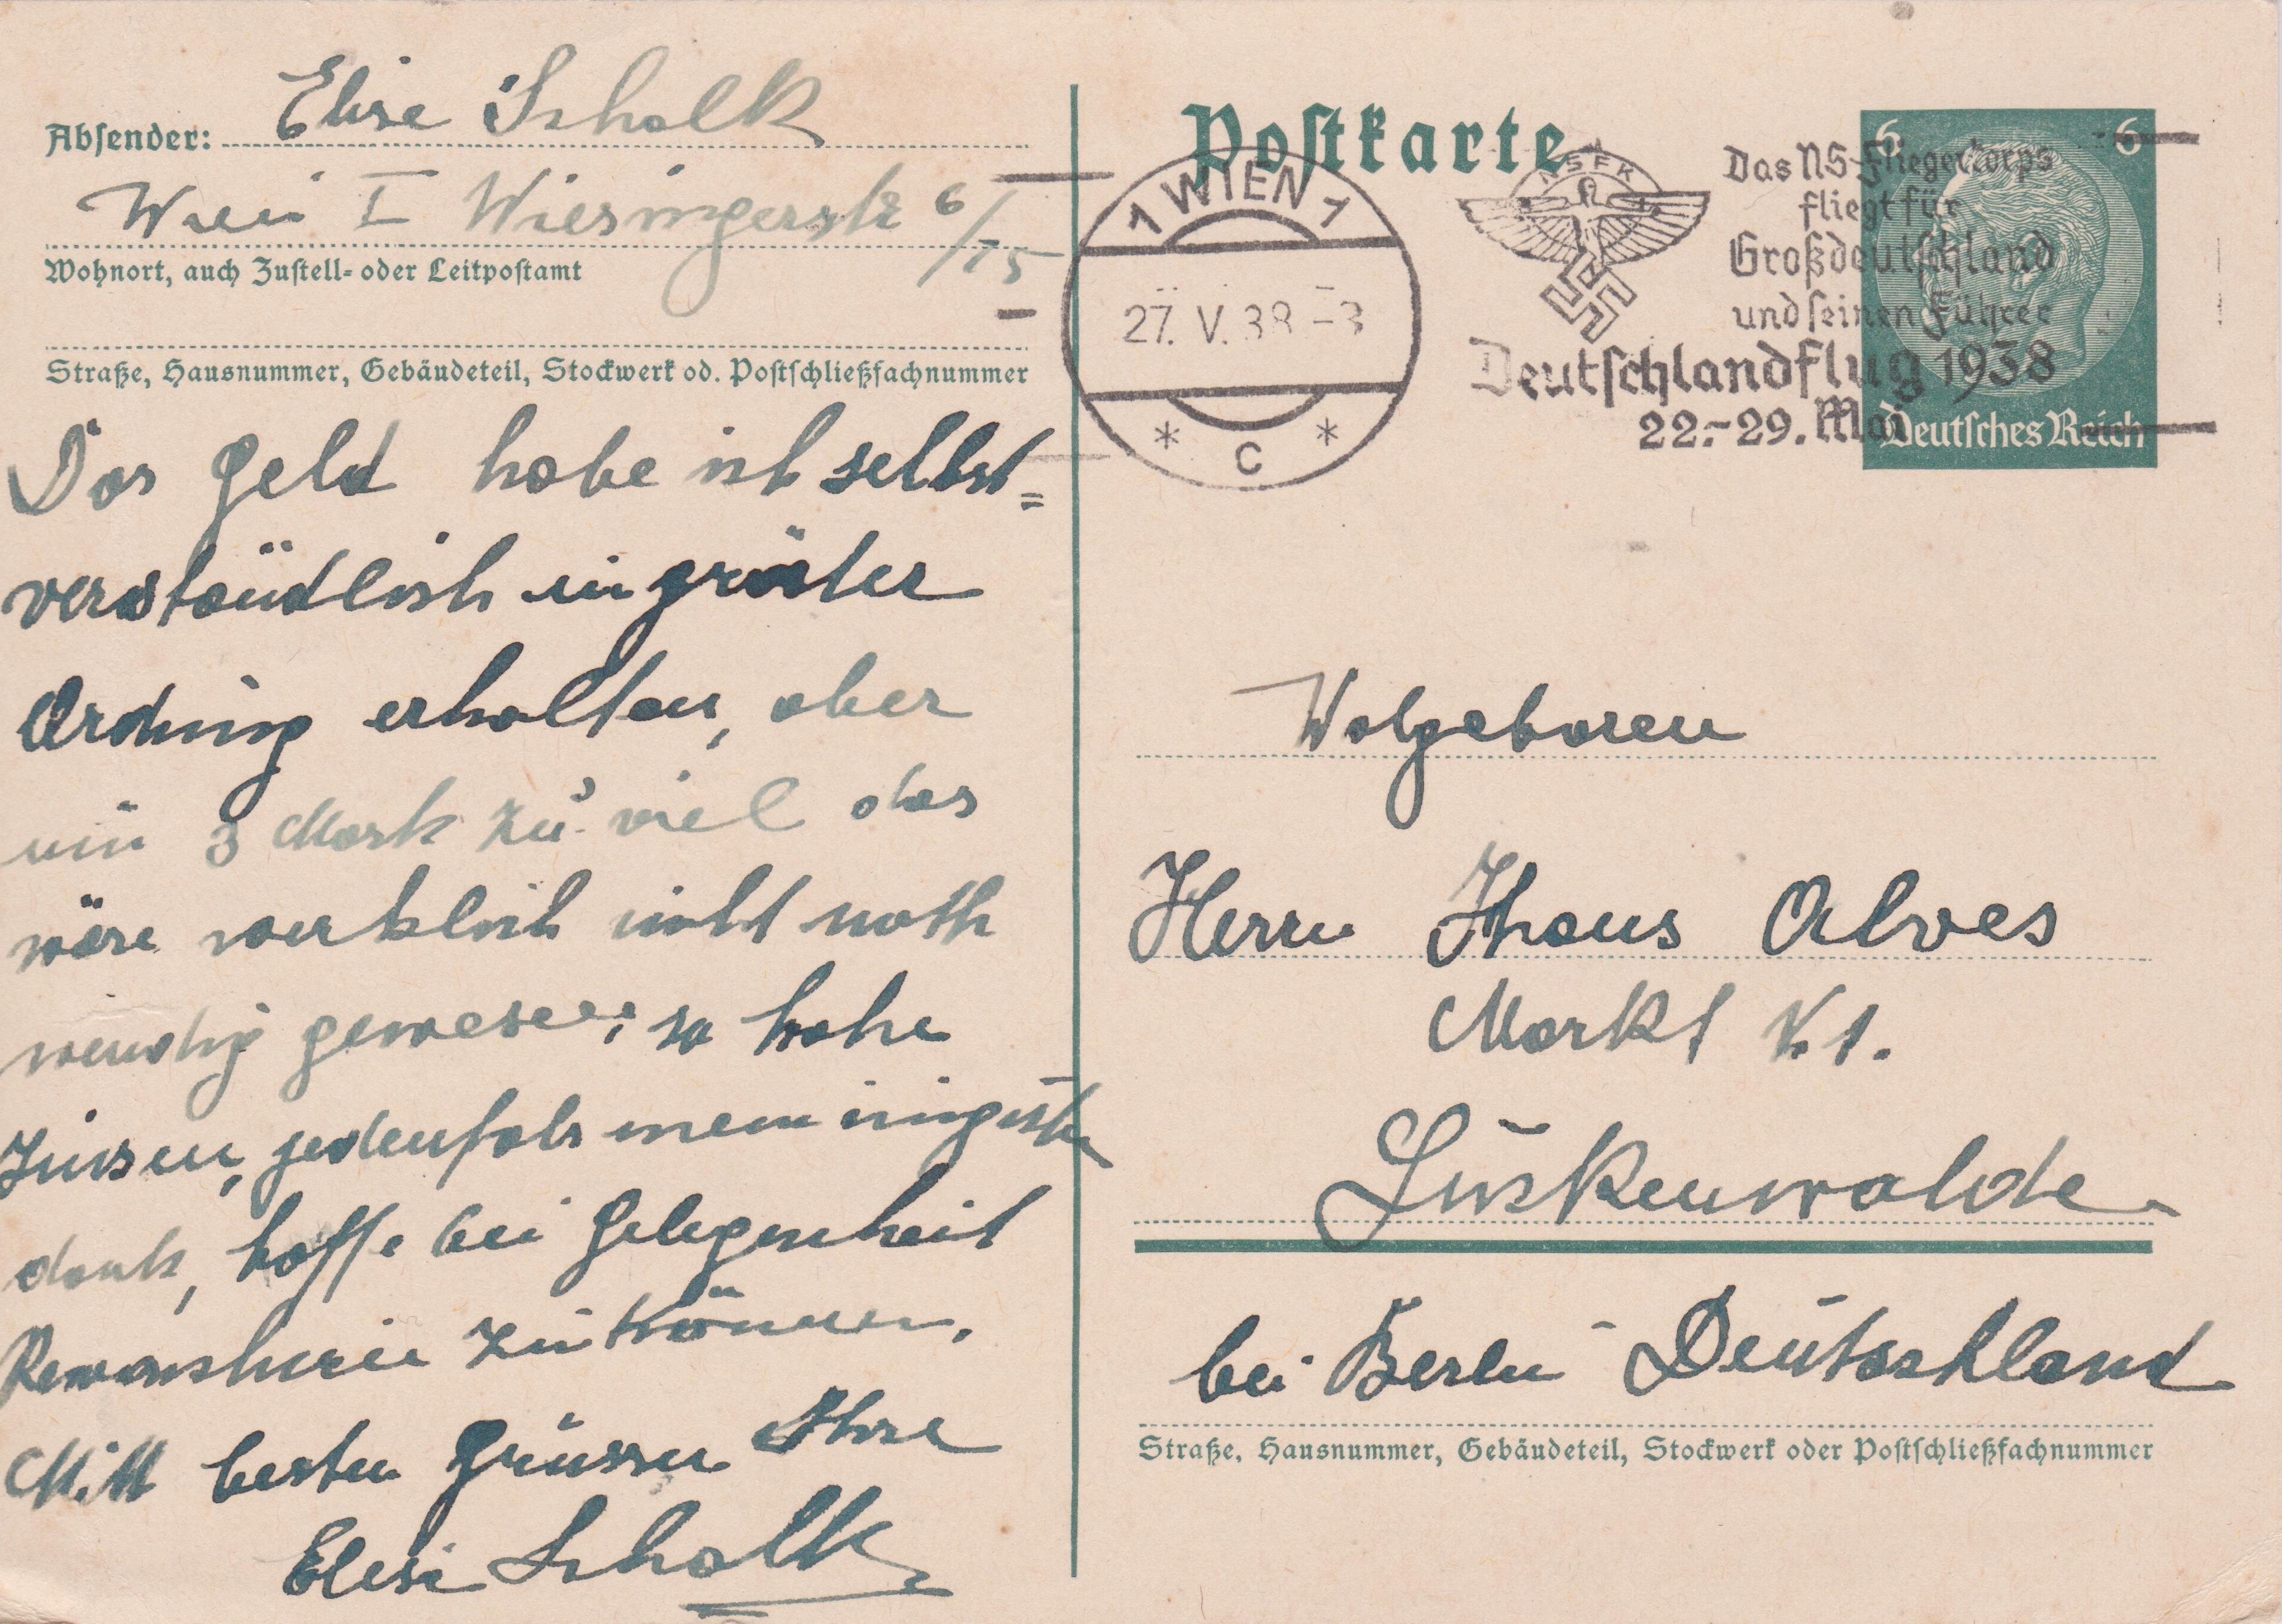 Absender: Elise Schalk
Wien I Wiesingerstr 6/15
Wohnort, auch Zustell- oder Leitpostamt
Straße, Hausnummer, Gebäudeteil, Stockwerk od. Postschließfachnummer
Das Geld habe ich selbst=
verständlich in gröster
Ordnung erhalten, aber
um 3 Mark zu viel das
wäre wirklich nicht noth
wendig gewesen, so hohe
Zinsen, jedenfals mein
dank, hoffe bei Gelegenheit
Revanchieren zu können.
Mitt besten Grüssen Ihre
Elise Schalk
Postkarte
1 WIEN 1
27. V. 38
* C *
NSFK
Das NS-Fliegerkorps
fliegt für
Großdeutschland
und seinen Führer
Deutschlandflug 1938
22.-29. Mai
6 6
Deutsches Reich
Wolgeboren
Herrn Alves
Markt
Luckenwalde
bei Berlin Deutschland
Straße, Hausnummer, Gebäudeteil, Stockwerk oder Postschließfachnummer